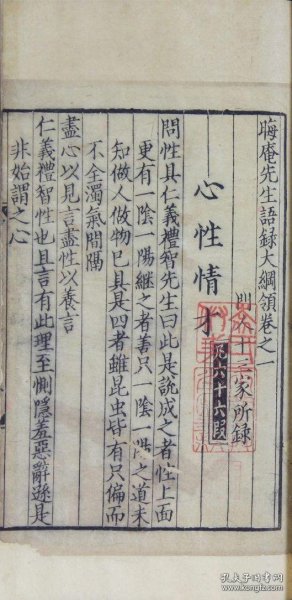 晦庵先生語録大綱領卷之一
十三家所録
心性情才
凡六十六段
問性具仁義禮智先生曰此是說成之者性上面
更有一陰一陽繼之者善只一陰一陽之道未
知做人做物已具是四者雖昆虫皆有只偏而
不全濁氣間隔
盡心以見言盡性以養言
仁義禮智性也且言有此理至惻隱羞惡辭遜是
非始謂之心
孔夫子舊書網
kongfz.com